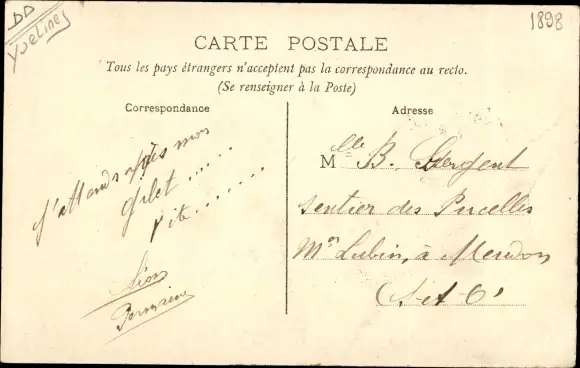 DD
Yveline
1898
CARTE POSTALE
Tous les pays étrangers n'acceptent pas la correspondance au recto.
(Se renseigner à la Poste)
Correspondance
J'attendrai mon
gilet .....
vite .......
Germaine
Adresse
Mlle B. Sergent
Sentier des Pucelles
Mon Lubin, à Meudon
(S-et-O)